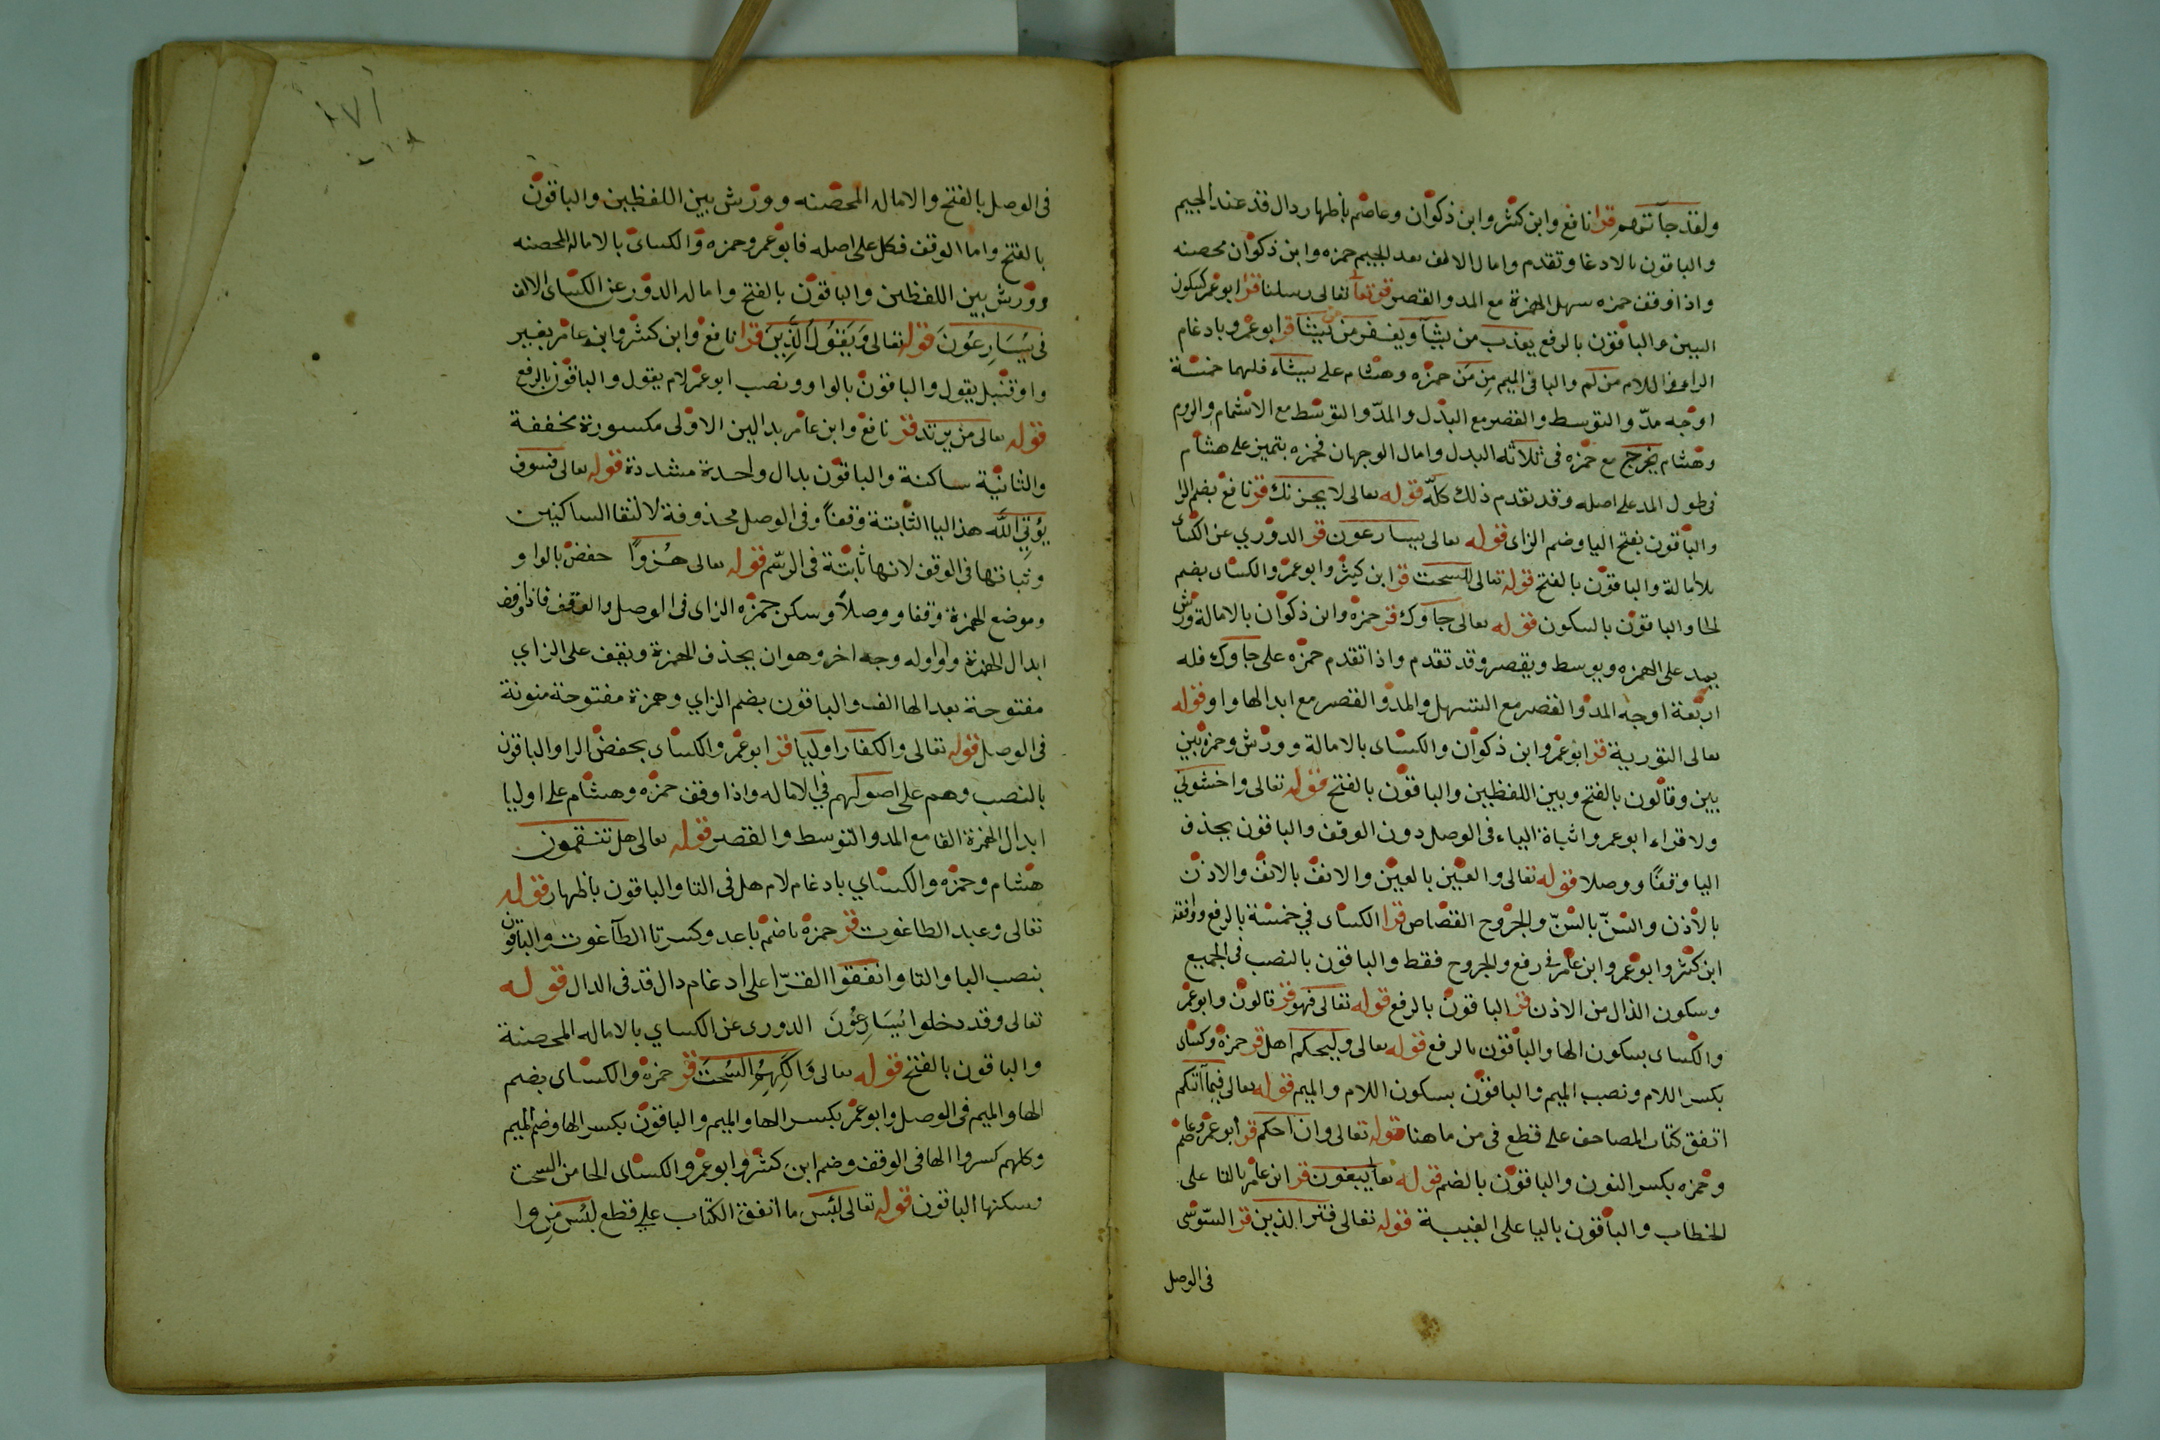 ولقد جآءتهم قرا نافع وابن كثير وابن ذكوان وعاصم باظهار دال قد عند الجيم
والباقون بالادغا وتقدم وامال الالف بعد الجيم حمزه وابن ذكوان محصنه
واذا وقف حمزه سهل الهمزة مع المد والقصر قوله تعالى رسلنا قرا ابوعمر بسكون
السين والباقون بالرفع يعذب من يشآ ويغفر من يشا قرا ابوعمرو بادغام
الرا في اللام من لم والباقي الميم من من حمزه وهشام على يشاء فلهما خمسة
اوجه مدّ والتوسط والقصر مع البدل والمدّ والتوسط مع الاشمام والروم
وهشام يخرج مع حمزه في ثلاثه البدل وامال الوجهان فحمزه يتميز على هشام
في طول المد على اصله وقد تقدم ذلك كلّه قوله تعالى لا يحزنك قر نافع بضم اليا
والباقون بفتح اليا وضم الزاى قوله تعالى يسارعون قر الدوري عن الكساى
بلامالة والباقون بالفتح قوله تعالى للسحت قر ابن كثير وابوعمر والكساى بضم
الحا والباقون بالسكون قوله تعالى جاوك قر حمزه وابن ذكوان بالامالة ورش
يمد على الهمزه ويوسط ويقصر وقد تقدم واذا تقدم حمزه على جاوك فله
اربعة اوجه المد والقصر مع التسهل والمد والقصر مع ابدالها واو قوله
تعالى التورية قر ابوعمر وابن ذكوان والكساى بالامالة وورش وحمزه بين
بين وقالون بالفتح وبين اللفظين والباقون بالفتح قوله تعالى واخشوني
ولا قراء ابوعمر واثباة الياء في الوصل دون الوقف والباقون بحذف
اليا وقفًا ووصلا قوله تعالى والعين بالعين والانف بالانف والاذن
بالاذن والسّنّ بالسّنّ والجروح القصاص قرا الكساى في خمسة بالرفع ووافقه
ابن كثر وابوعمر وابن عامر في رفع والجروح فقط والباقون بالنصب في الجميع
وسكون الذال من الاذن قر الباقون بالرفع قوله تعالى فهو قر قالون وابوعمر
والكساى بسكون الها والباقون بالرفع قوله تعالى وليحكم اهل قر حمزه وكساى
بكسر اللام ونصب الميم والباقون بسكون اللام والميم قوله تعالى فيما آتكم
اتفق كتاب المصاحف على قطع في من ما هنا قوله تعالى وان احكم قر ابوعمر وعاصم
وحمزه بكسر النون والباقون بالضم قوله تعا يبغون قر ابن عامر بالتا على
الخطاب والباقون باليا على الغيبة قوله تعالى فترا الذين قر السّوسى
فى الوصل
فى الوصل بالفتح والاماله المحصنه وورش بين اللفظين والباقون
بالفتح واما الوقف فكل على اصله فابوعمر وحمزه والكساى بالاماله المحصنه
وورش بين اللفظين والباقون بالفتح واماله الدور عن الكساى الالف
فى يسارعون قوله تعالى ويقول الذين قرا نافع وابن كثر وابن عامر بغير
واو قبل يقول والباقون بالواو ونصب ابوعمر لام يقول والباقون بالرفع
قوله تعالى من يرتد قر نافع وابن عامر بدالين الاولى مكسورة مخففة
والثانية ساكنة والباقون بدال واحدة مشددة قوله تعالى فسوف
يؤتي الله هذ اليا الثابتة وقفًا وفى الوصل محذوفة لالتقا الساكنين
وثباتها فى الوقف لانها ثابتة فى الرسم قوله تعالى هزوًا حفص بالواو
وموضع الهمزة وقفا ووصلاً وسكن حمزه الزاى فى الوصل والوقف فاذا وقف
ابدال الهمزة واوا وله وجه اخر وهو ان يحذف الهمزة ويقف على الزاي
مفتوحة بعدالها الف والباقون بضم الزاي وهمزة مفتوحة منونة
فى الوصل قوله تعالى والكفار اوليا قر ابوعمر والكساى بخفض الرا والباقون
بالنصب وهم على اصولهم في الاماله واذا وقف حمزه وهشام على اوليا
ابدال الهمزة الفا مع المد والتوسط والقصر قوله تعالى هل تنقمون
هشام وحمزه والكساي بادغام لام هل فى التا والباقون باظهار قوله
تعالى وعبد الطاغوت قر حمزه بضم باعد وكسر تا الطآغوت والباقون
بنصب البا والتا وانفقوا القرّا على ادغام دال قد فى الدال قوله
تعالى وقد دخلوا يسارعون الدورى عن الكساي بالاماله المحصنة
والباقون بالفتح قوله تعالى واكلهم السحت قر حمزه والكساى بضم
الها والميم فى الوصل وابوعمر بكسر الها والميم والباقون بكسر الها وضم الميم
وكلهم كسروا الها فى الوقف وضم ابن كثر وابوعمر والكساى الحا من السحت
وسكنها الباقون قوله تعالى لبئس ما اتفق الكتاب على قطع لبئس من وا